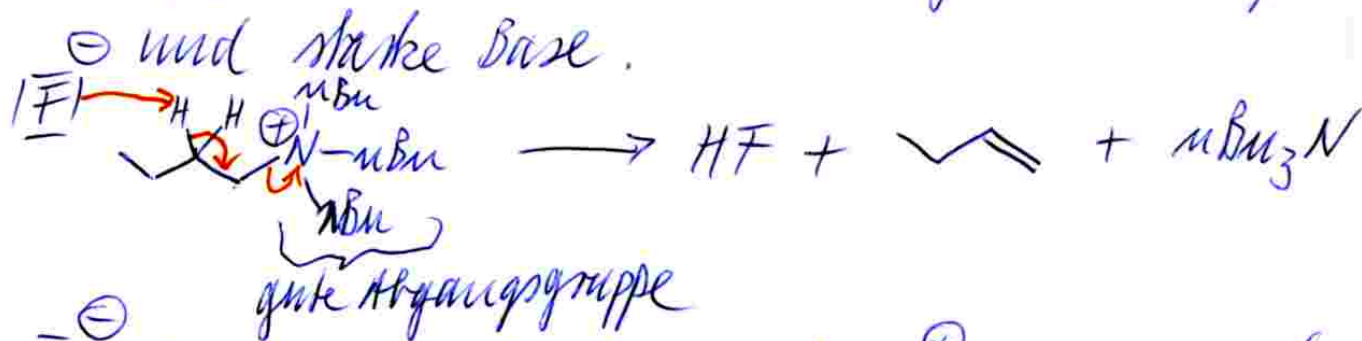 ⊖ und starke Base.
nBu
|F| H H ⊕ N–nBu ⟶ HF + + nBu₃N
nBu
gute Abgangsgruppe
⊖